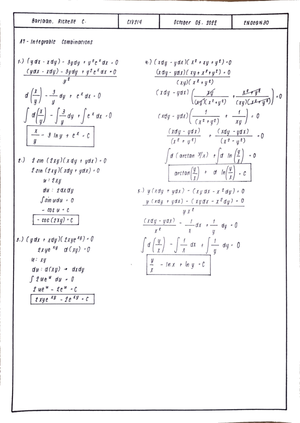 Baribam, Richelle C.
CIV214
October 05, 2022
ENDEQNJO
A7 - Integrable Combinations
1.) (ydx - xdy) - 3ydy + y²eˣdx = 0
(ydx - xdy) - 3ydy + y²eˣdx = 0
y²
d(x/y) - 3/y dy + eˣdx = 0
∫d(x/y) - ∫3/y dy + ∫eˣdx = 0
x/y - 3 ln y + eˣ = C
2.) 2 sin (2xy)(xdy + ydx) = 0
2 sin (2xy)(xdy + ydx) = 0
u: 2xy
du: 2xdy
∫sin u du = 0
- cos u = c
- cos (2xy) = C
3.) (ydx + xdy)(2xye^xy) = 0
2xye^xy d(xy) = 0
u: xy
du: d(xy) → dxdy
∫2ueᵘ du = 0
2ueᵘ - 2eᵘ = C
2xye^xy - 2e^xy = C
4.) (xdy - ydx)(x² + xy + y²) = 0
(xdy - ydx)(xy + x² + y²) = 0
(xy)(x² + y²)
(xdy - ydx)(xy/(xy)(x² + y²) + x² + y²/(xy)(x² + y²)) = 0
(xdy - ydx)(1/(x² + y²) + 1/xy) = 0
(xdy - ydx)/(x² + y²) + (xdy - ydx)/(xy) = 0
∫d(arctan y/x) + ∫d ln(y/x) = 0
arctan(y/x) + d ln(y/x) = C
5.) y(xdy - ydx) - (xydx - x²dy) = 0
y(xdy + ydx) - (xydx - x²dy) = 0
yx²
(xdy - ydx)/x² - 1/x dx + 1/y dy = 0
∫d(y/x) - ∫1/x dx + ∫1/y dy = 0
y/x - ln x + ln y = C